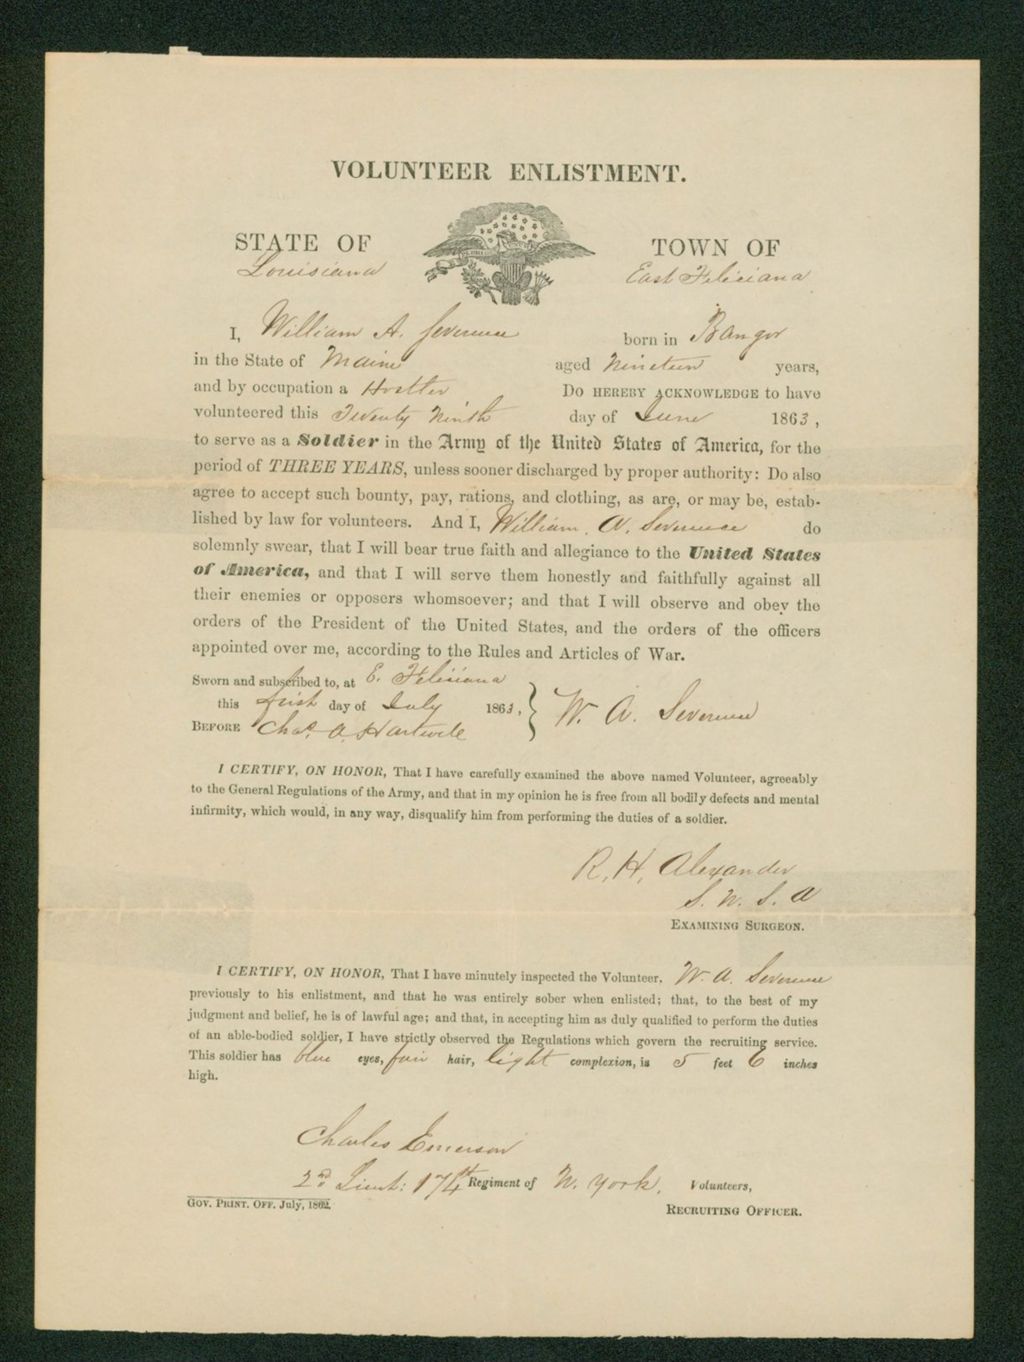 VOLUNTEER ENLISTMENT.
STATE OF TOWN OF
Louisiana East Feliciana
I, William A. Severence born in Bangor
in the State of Maine aged Nineteen years,
and by occupation a Hostler Do HEREBY ACKNOWLEDGE to have
volunteered this Twenty Ninth day of June 1863,
to serve as a Soldier in the Army of the United States of America, for the
period of THREE YEARS, unless sooner discharged by proper authority: Do also
agree to accept such bounty, pay, rations, and clothing, as are, or may be, estab-
lished by law for volunteers. And I, William A. Severence do
solemnly swear, that I will bear true faith and allegiance to the United States
of America, and that I will serve them honestly and faithfully against all
their enemies or opposers whomsoever; and that I will observe and obey the
orders of the President of the United States, and the orders of the officers
appointed over me, according to the Rules and Articles of War.
Sworn and subscribed to, at E. Feliciana
this first day of July 1863, W. A. Severence
BEFORE Chas. A. Hartwell
I CERTIFY, ON HONOR, That I have carefully examined the above named Volunteer, agreeably
to the General Regulations of the Army, and that in my opinion he is free from all bodily defects and mental
infirmity, which would, in any way, disqualify him from performing the duties of a soldier.
R. H. Alexander
EXAMINING SURGEON.
I CERTIFY, ON HONOR, That I have minutely inspected the Volunteer, W. A. Severence
previously to his enlistment, and that he was entirely sober when enlisted; that, to the best of my
judgment and belief, he is of lawful age; and that, in accepting him as duly qualified to perform the duties
of an able-bodied soldier, I have strictly observed the Regulations which govern the recruiting service.
This soldier has blue eyes, fair hair, light complexion, is 5 feet 6 inches
high.
Charles Emerson
2d Lieut: 174th Regiment of N. York. Volunteers,
GOV. PRINT. OFF. July, 1862. RECRUITING OFFICER.